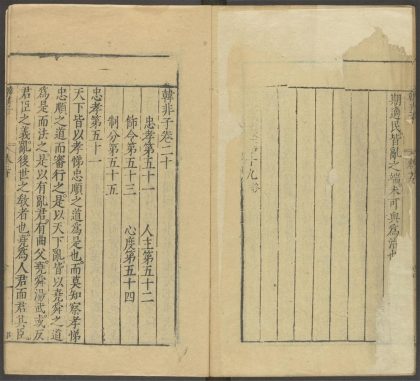 期適民皆亂之端未可與為治也
韓非子卷二十
忠孝第五十一　人主第五十二
飾令第五十三　心度第五十四
制分第五十五
忠孝第五十一
天下皆以孝悌忠順之道為是也而莫知察孝悌
忠順之道而審行之是以天下亂皆以堯舜之道
為是而法之是以有亂君有曲父堯舜湯武或反
君臣之義亂後世之教者也堯為人君而君其臣